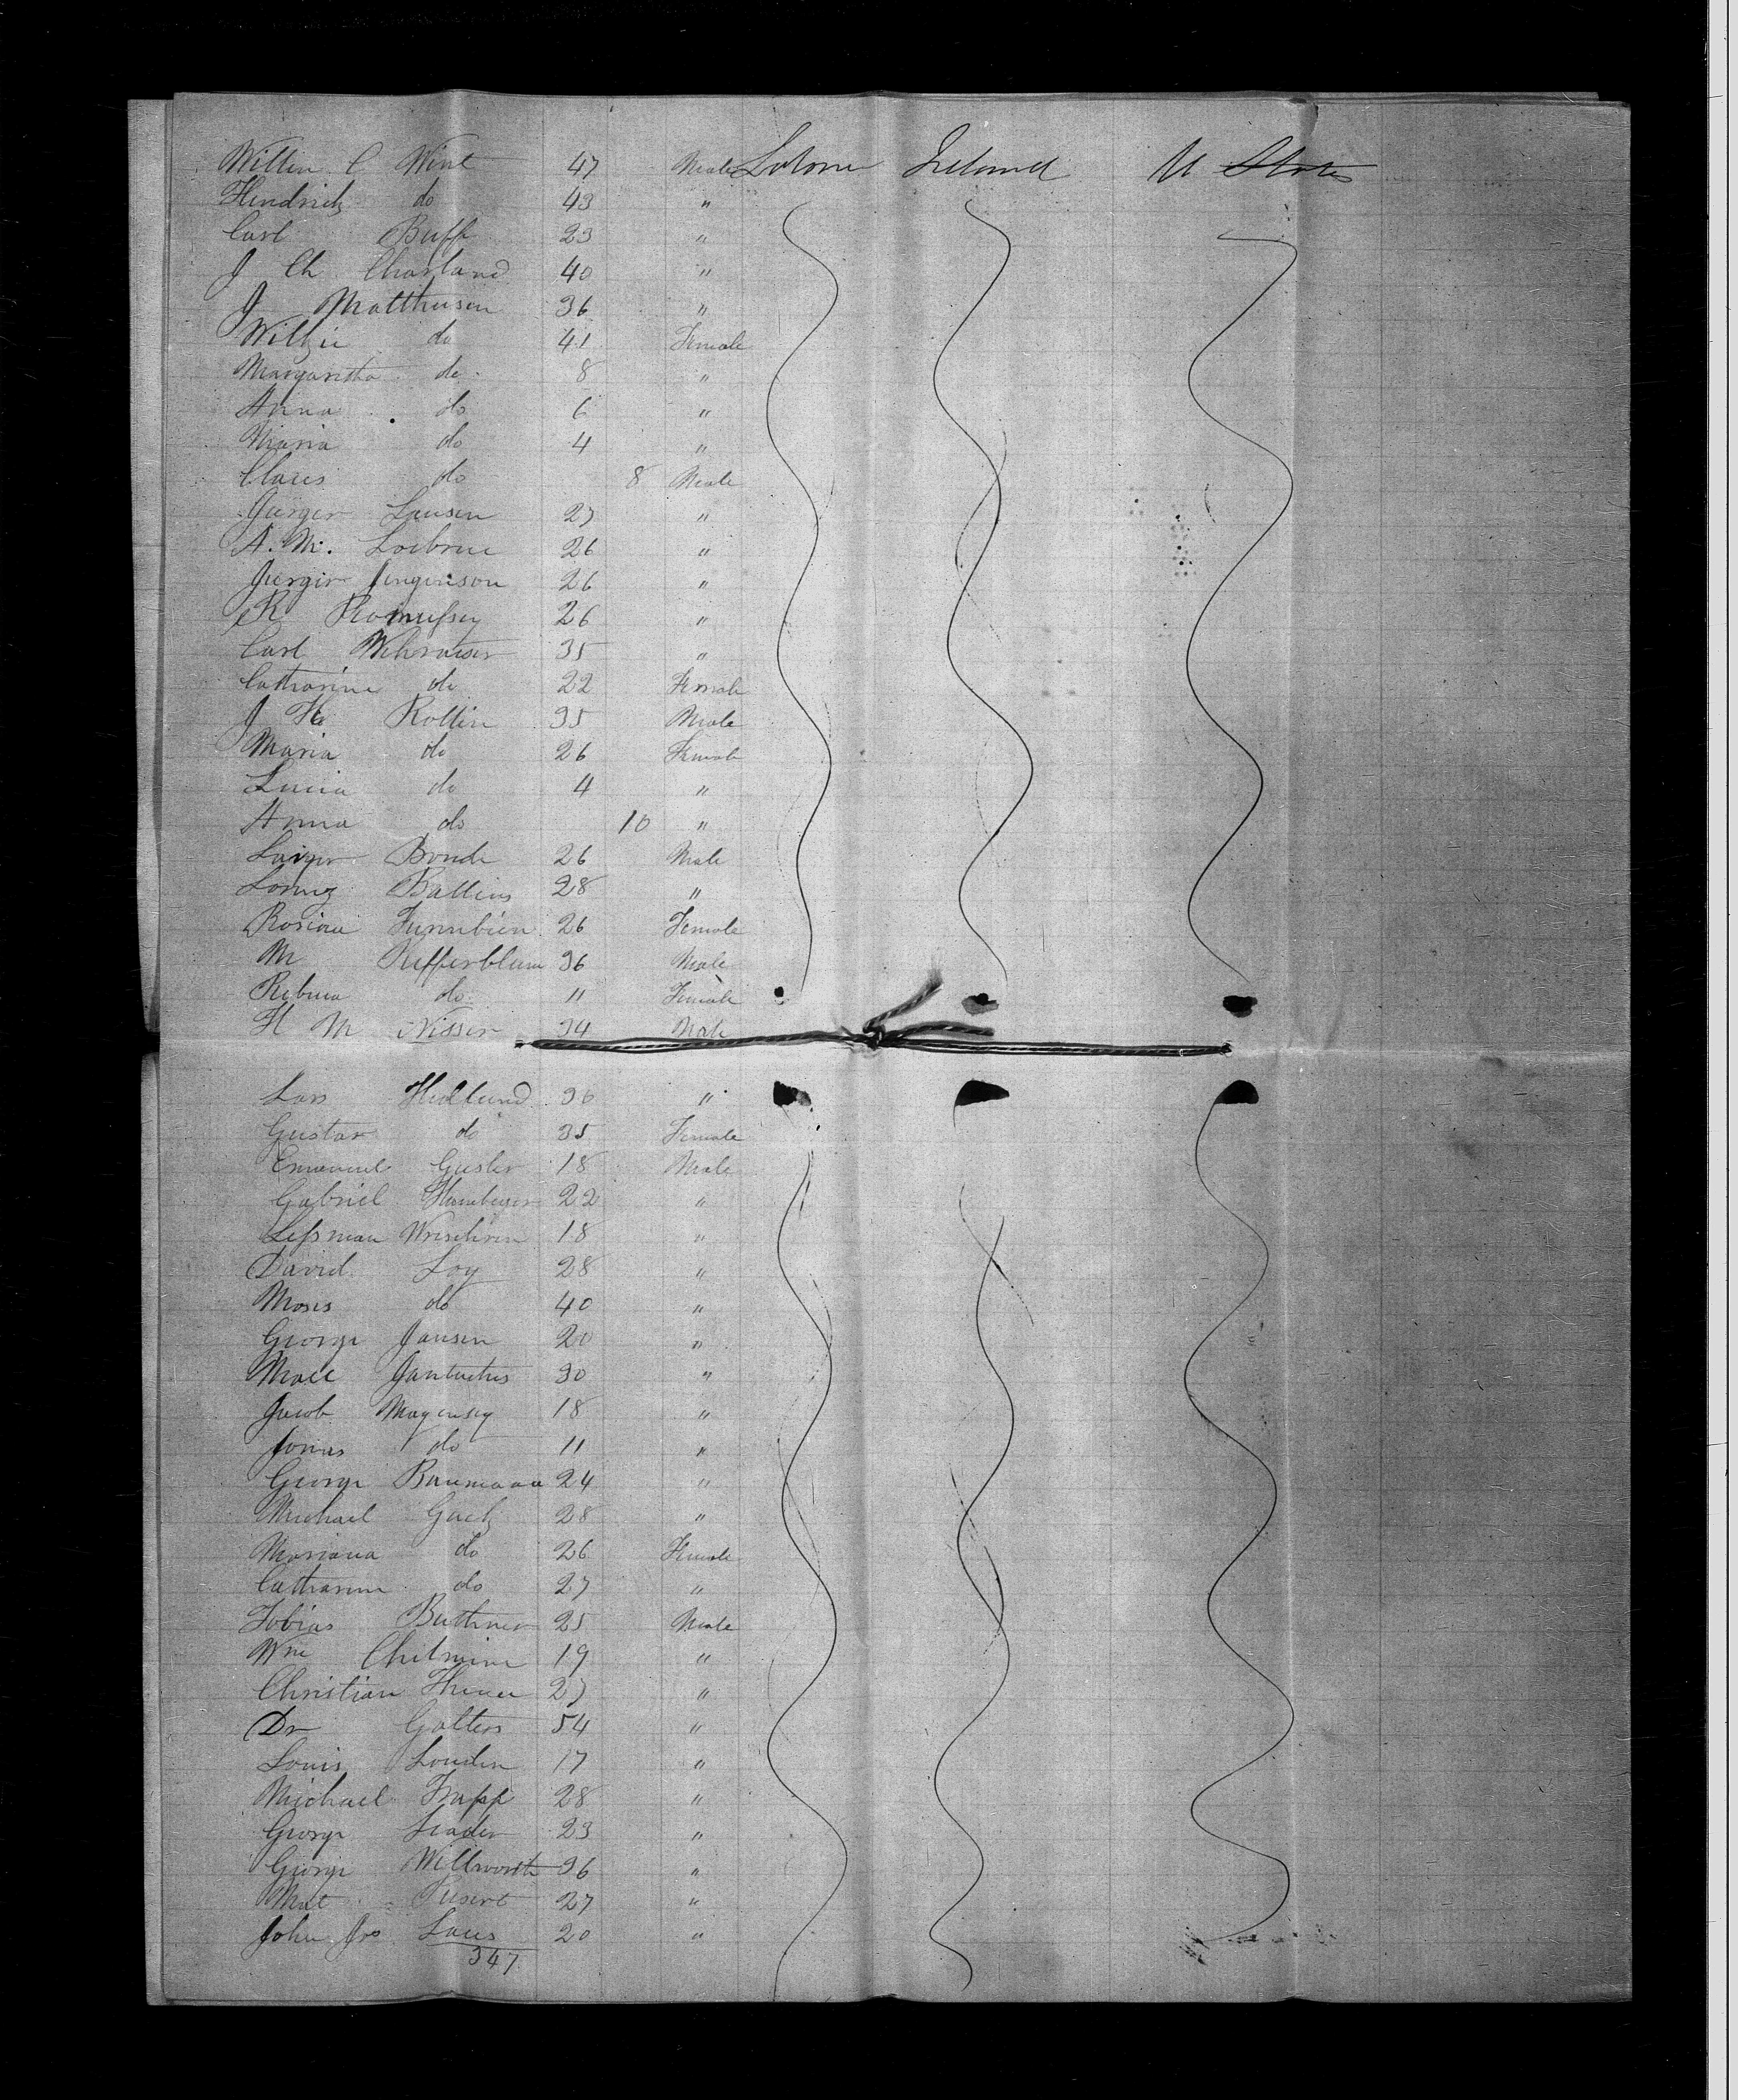 Willm C Wint 47 Male Labour Ireland U States
Hendrich do 43 "
Carl Buff 23 "
J Ch Charland 40 "
J Matthusen 36 "
do 41 Female
Margaretha do 8 "
Anna do 6 "
Maria do 4 "
Claus do 8 Male
Jurger Lausen 27 "
A. M. 26 "
Jurger Jurgenson 26 "
R 26 "
Carl 35 "
Catharine do 22 Female
J H Rollin 35 Male
Maria do 26 Female
Lucia do 4 "
Anna do 10 "
Bonde 26 Male
Lorenz Ballins 28 "
Rosina 26 Female
M Kefferblum 36 Male
Rebeca do 11 Female
H M Nissen 34 Male
Lars Hedlund 36 "
Gustav do 35 Female
Emanuel Gusler 18 Male
Gabriel Hamburger 22 "
Lessman 18 "
David Loy 28 "
Moses do 40 "
George Jansen 20 "
30 "
Jacob 18 "
Jonas do 11 "
George Baumann 24 "
Michael 28 "
Mariana do 26 Female
Catharine do 27 "
Tobias Buthner 25 Male
Wm 19 "
Christian 27 "
Dr Galters 54 "
Louis Louden 17 "
Michael Trapp 28 "
George 23 "
George Willworth 36 "
Mat 27 "
John Jro Laus 20 "
347